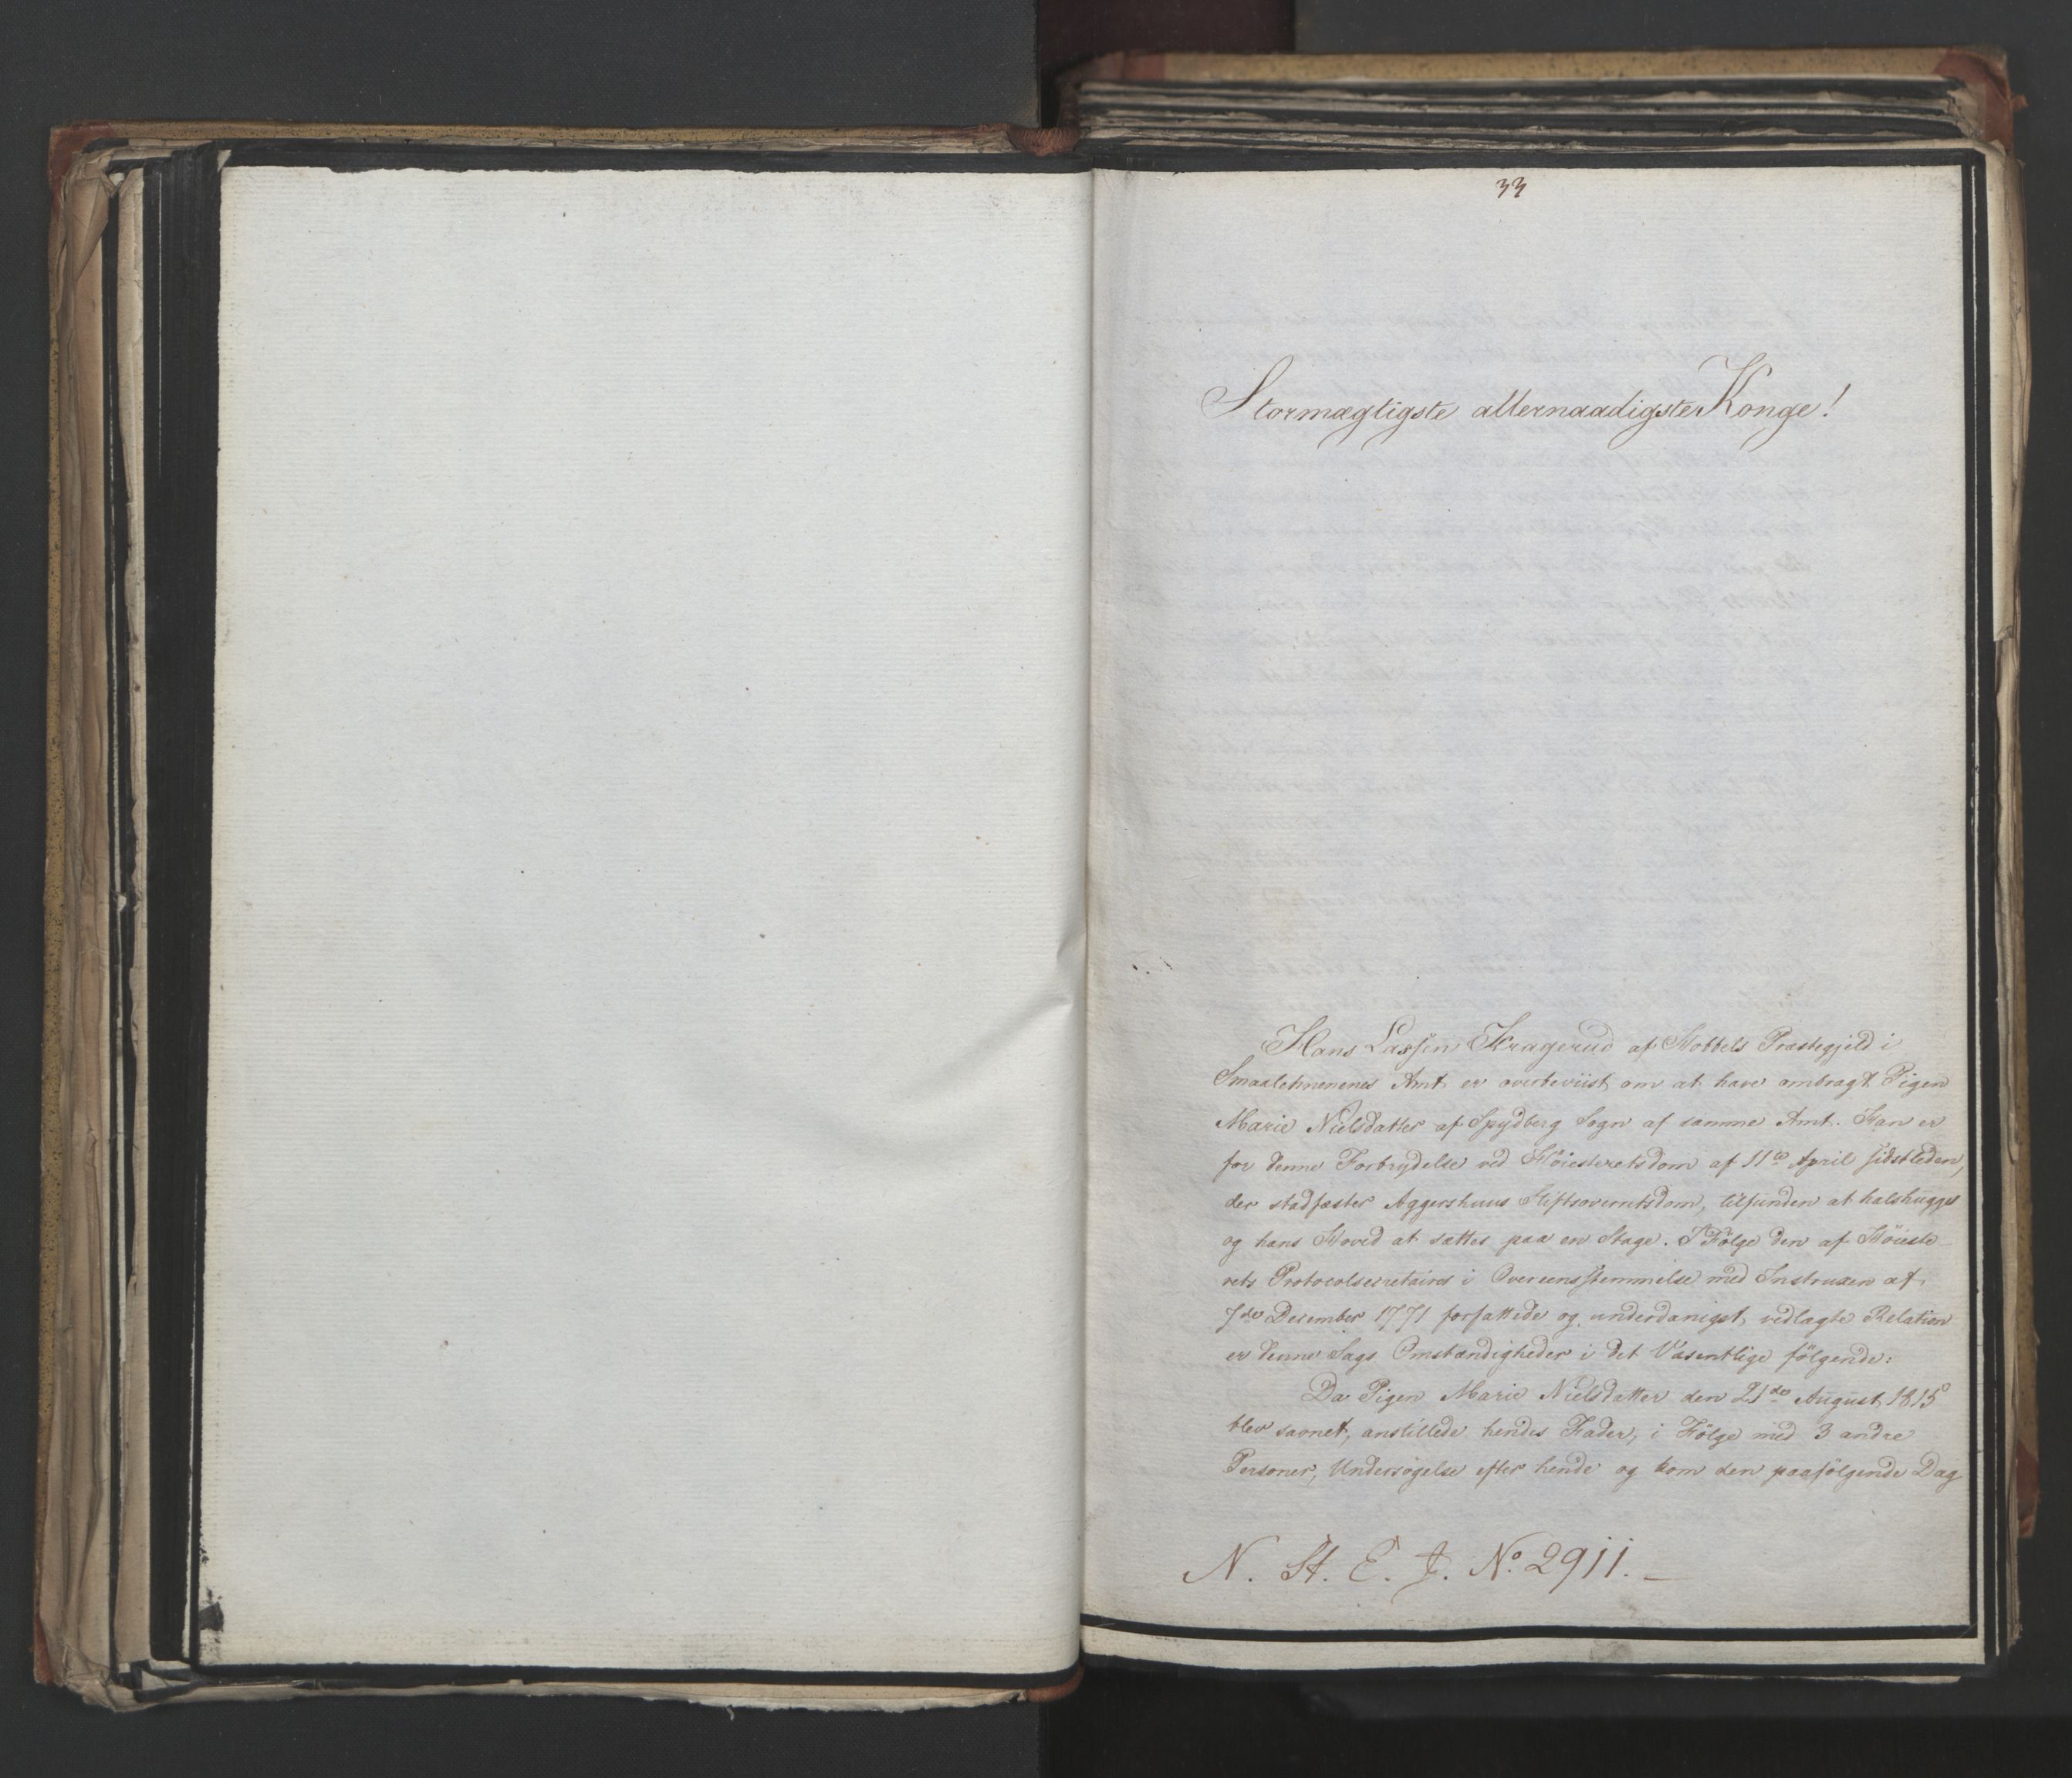 33
Stormægtigste allernaadigste Konge!
Hans Larsen Kragerud af Hobbels Præstegjeld i
Smaalehnenenes Amt er overbeviist om at have ombragt Pigen
Marie Nielsdatter af Spydberg Sogn af samme Amt. Han er
for denne Forbrydelse ved Høiesteretsdom af 11te April sidstleden,
der stadfæster Aggershuus Stiftsoverretsdom, tilfunden at halshugges
og hans Hoved at sættes paa en Stage. I Følge den af Høieste-
rets Protocolsecretairer i Overeensstemmelse med Instruxen af
7de December 1771 forfattede og underdanigst vedlagte Relation
er denne Sags Omstændigheder i det Væsentlige følgende:
Da Pigen Marie Nielsdatter den 21de August 1815
blev savnet, anstillede hendes Fader, i Følge med 3 andre
Personer, Undersøgelse efter hende og kom den paafølgende Dag
N. St. E. J. No. 2911. –